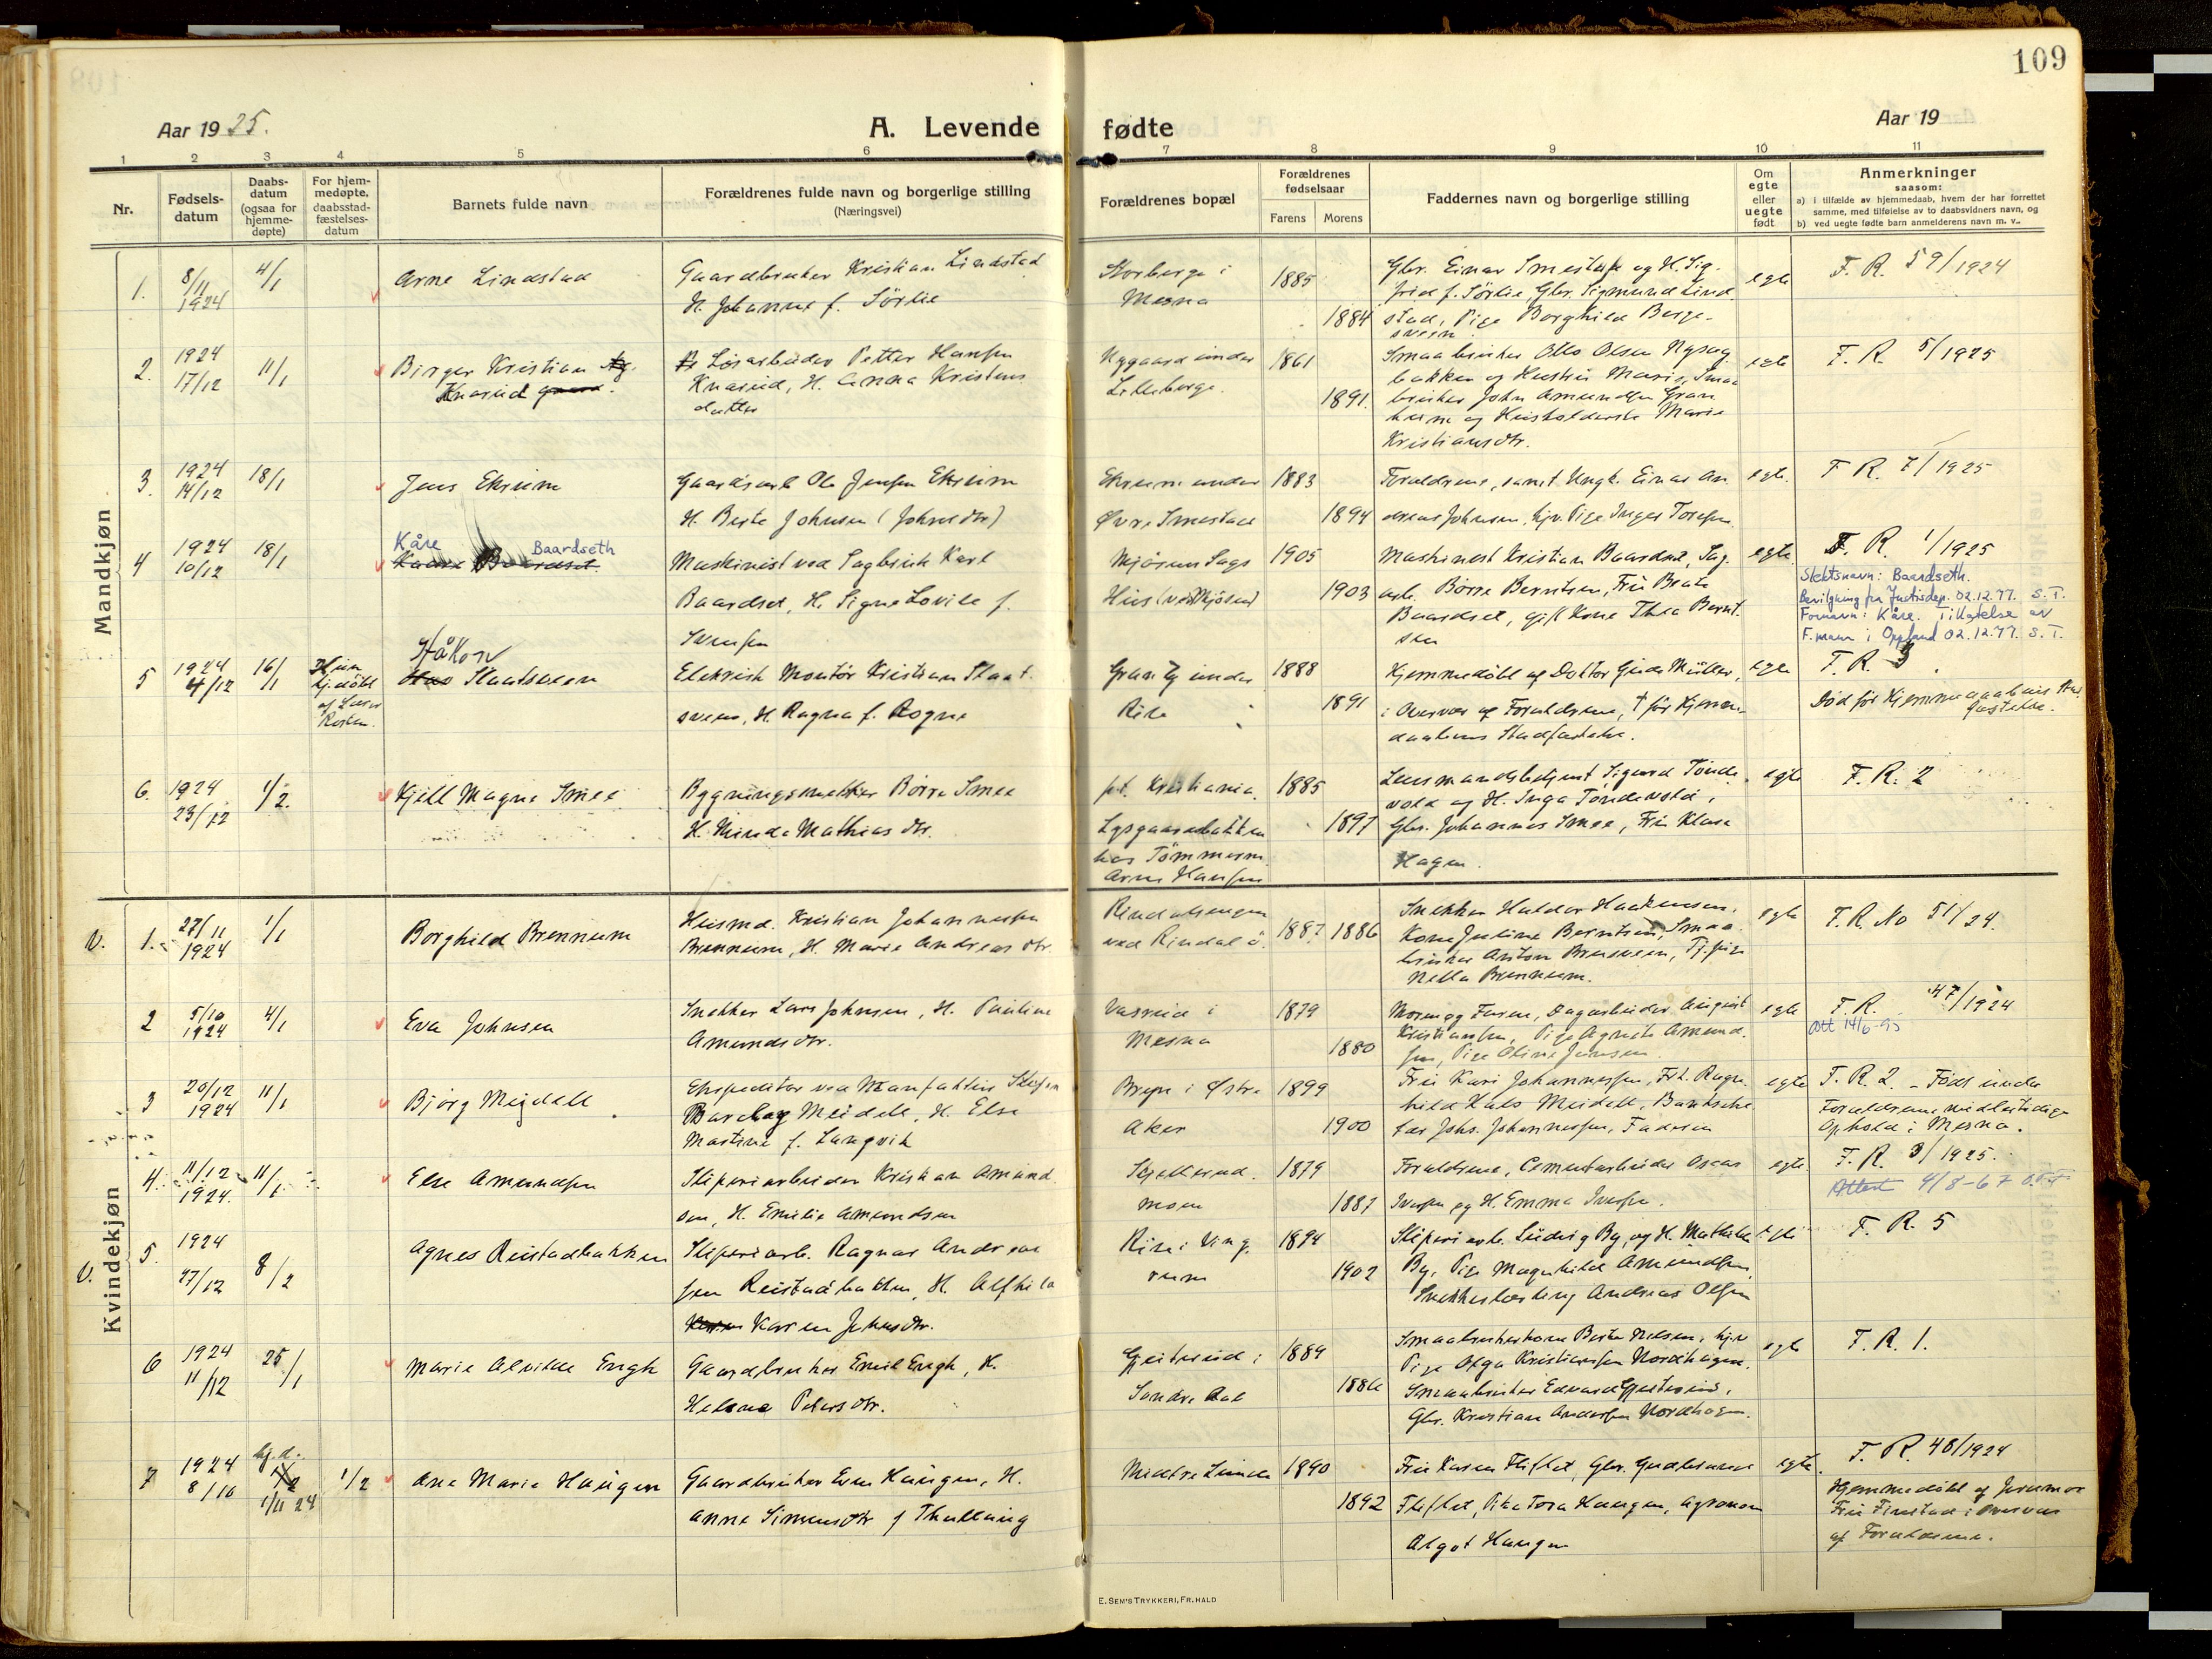 109
Aar 1925.
A. Levende fødte
Aar 19
1 2 3 4 5 6 7 8 9 10 11
Nr.
Fødsels-
datum
Daabs-
datum
(ogsaa for
hjemme-
døpte)
For hjem-
medøpte,
daabsstad-
fæstelses-
datum
Barnets fulde navn
Forældrenes fulde navn og borgerlige stilling
(Næringsvei)
Forældrenes bopæl
Forældrenes
fødselsaar
Farens
Morens
Faddernes navn og borgerlige stilling
Om
egte
eller
uegte
født
Anmerkninger
saasom:
a) i tilfælde av hjemmedaab, hvem der har forrettet
samme, med tilføielse av to daabsvidners navn, og
b) ved uegte fødte barn anmelderens navn m. v..
Mandkjøn
1. 8/11 1924
4/1
Arne Lindstad
Gaardbruker Kristian Lindstad
H. Johanne f. Sörlie
Storberge i
Mesna
1885
1884
Gbr. Einar Smestad og H. Sig-
frid f. Sörlie, Gbr. Sigmund Lind
stad, Pige Borghild Berge-
sveen
egte
F. R. 59/1924
2. 1924 17/12
11/1
Birger Kristian
Knarud
Lösarbeider Petter Hansen
Knarud, H. Anna Kristens
datter
Nygaard under
Lilleberge.
1861
1891.
Smaabruker Otto Olsen
bakken og Hustru Maris, Smaa
bruker John Amundsen Gran
lum og Husholderske Marie
Kristiansdtr.
egte
F. R. 5/1925
3. 1924 14/12
18/1
Jens Ekrum
Gaardsarb Ole Jensen Ekrum
H. Berte Johnsen (Johnsdtr)
Ekrum under
Øvre Smestad
1883
1894
Foreldrene, samt Ungk. Einar An
dreas Johnsen, hjv. Pige Inger Toresen
egte.
F R. 7/1925
4 1924 10/12
18/1
Kåre Baardseth
Maskinist ved Sagbruk Karl
Baardset, H. Signe Lovise f.
Svensen
Mjösen Sags
Hus (ved Mjösen)
1905
1903
Maskinist Kristian Baardset, Sag-
arb. Börre Berntsen, Fru Beate
Baardset, gift Kone Thea Bernt-
sen
egte.
F. R. 1/1925
Slektsnavn: Baardseth.
Bevilgning fra Justisdep. 02.12.77. S.T.
Fornavn: Kåre. Tillatelse av
F.mann i Oppland 02.12.77. S.T.
5 1924 4/12
16/1
Håkon
Slaatsveen
Elektrisk Montör Kristian Slaat-
sveen, H. Ragna f. Rogne
Granly under
Rise
1888
1891
Hjemmedöbt af Doktor Gude Müller,
i Overvær af Foreldrene, † för Hjemme-
daabens Stadfæstelse.
egte
F. R. 3
Död för Hjemmedaabens Stad
fæstelse.
6. 1924 23/12
1/2.
Kjell Magne Smee
Bygningssnekker Börre Smee
H. Minda Mathiasdtr.
p.t. Kristiania.
Lysgaardsbakken
hos Tömmerm.
Arne Hansen
1885
1897
Lensmandsbetjent Sigurd Tönde
vold og H. Inga Töndevold,
Gbr. Johannes Smee, Fru Klara
Hagen.
egte
F. R. 2
Kvindekjøn
V. 1. 27/11 1924
1/1
Borghild Brennum
Husmd. Kristian Johannessen
Brennum, H. Marie Andreasdtr.
Rindalsengen
ved Rindalö.
1887
1886
Snekker Haldor Haakensen,
Kone Juline Berntsen, Smaa-
bruker Anton Brusveen, Tj.pige
Nella Brennum.
egte
F. R. No 51/24.
2 5/10 1924
4/1
Eva Johnsen
Snekker Lars Johnsen, H. Pauline
Amundsdtr.
Vasrud i
Mesna
1879
1880
Moren og Faren, Dagarbeider August
Kristiansen, Pige Agnete Amund-
sen, Pige Oline Jensen.
egte
F. R. 47/1924
Att 14/6-93
3 20/12 1924
11/1
Björg Meidell
Ekspeditör ved Manufaktur
Meidell, H. Else
Martine f. Langvik
Bryn i Østre
Aker
1899
1900
Fru Kari Johannessen, Frk. Ragn-
hild Hals Meidell,
Johs. Johannessen, Faderen
egte
F. R. 2. - Född under
Foreldrenes midlertidige
Ophold i Mesna.
4. 11/12 1924.
11/1
Else Amundsen
Sliperiarbeider Kristian Amund
sen, H. Emilie Amundsen
Skjellerud-
moen
1879
1887
Foreldrene, Cementarbeider Oscar
Iversen og H. Emma Iversen.
egte.
F. R. 3/1925.
Attest 4/8-67
V. 5. 1924 27/12
8/2
Agnes Reistadbakken
Sliperiarb. Ragnar Andreas
sen Reistadbakken, H. Alfhild
Karen Johnsdtr.
Rise i Ving-
rum
1894
1902
Sliperiarb. Ludvig By, og H. Mathilde
By, Pige Magnhild Amundsen,
Snekkerlærling Andreas Olsen
egte
F. R. 5
6 1924 11/12
25/1
Marie Alvilde Engh
Gaardbruker Emil Engh, H.
Helene Petersdtr.
Gjeterud i
Söndre Aal
1884
1886
Smaabrukerkone Berte Nilsen, hjv.
Pige Olga Kristiansen Nordhagen.
Smaabruker Edvard Gjeterud,
Gbr. Kristian Andersen Nordhagen.
egte
F. R. 1.
7 1924 8/10
hj.d.
1/11 24
1/2
Ane Marie Haugen
Gaardbruker Even Haugen, H.
Anne Simensdtr f Thallaug
Midtre Lunde
1890
1892
Fru Karen Fliflet, Gbr. Gudbrand
Fliflet, Pike Tora Haugen, Agronom
Algot Haugen
egte.
F. R. 48/1924
Hjemmedöbt af Jormor
Fru Finstad i Overvær
af Foreldrene.
E. SEM'S TRYKKERI, FR.HALD